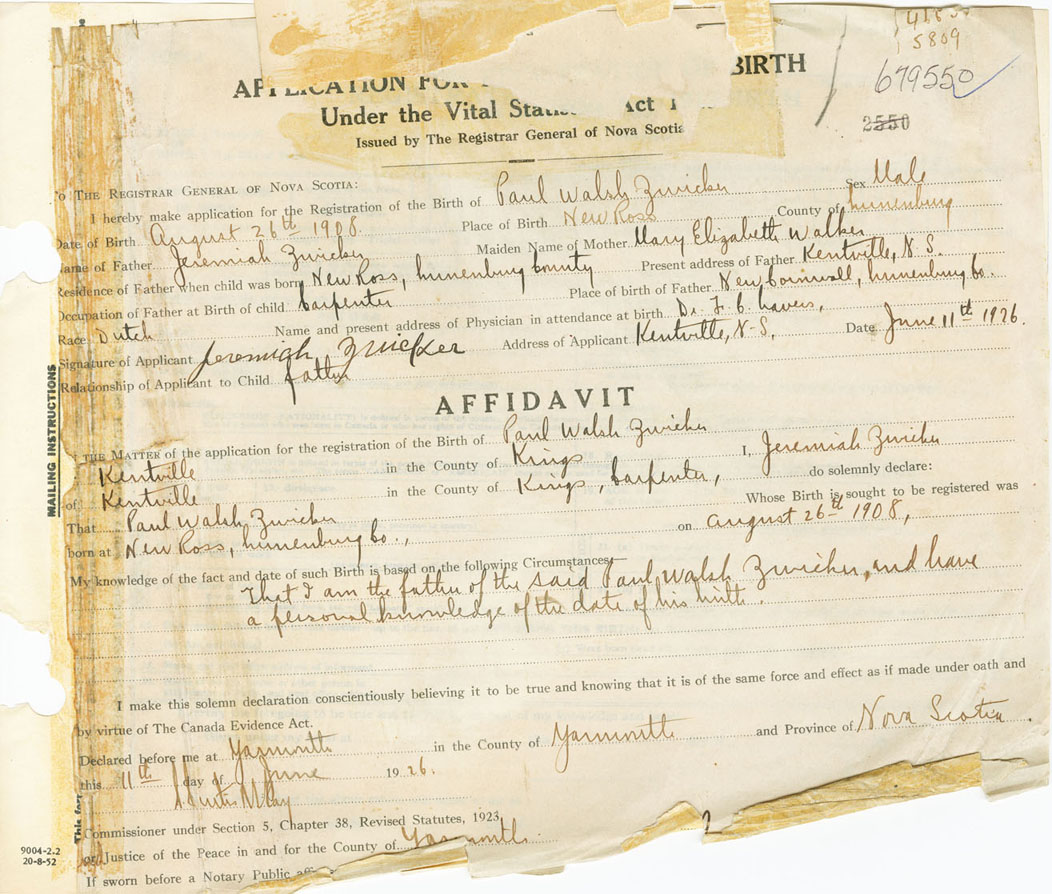 5809
679550
2550
APPLICATION FOR BIRTH
Under the Vital Act
Issued by The Registrar General of Nova Scotia
To THE REGISTRAR GENERAL OF NOVA SCOTIA:
I hereby make application for the Registration of the Birth of Paul Walsh Zwicker Sex Male
Date of Birth August 26th 1908. Place of Birth New Ross County of Lunenburg
Name of Father Jeremiah Zwicker Maiden Name of Mother Mary Elizabeth Walker
Residence of Father when child was born New Ross, Lunenburg County Present address of Father Kentville, N.S.
Occupation of Father at Birth of child Carpenter Place of birth of Father New Cornwall, Lunenburg Co.
Race Dutch Name and present address of Physician in attendance at birth Dr. F. C. Lavers,
Signature of Applicant Jeremiah Zwicker Address of Applicant Kentville, N.S. Date June 11th 1926.
Relationship of Applicant to Child father
MAILING INSTRUCTIONS
AFFIDAVIT
THE MATTER of the application for the registration of the Birth of Paul Walsh Zwicker
Kentville in the County of Kings I, Jeremiah Zwicker
of Kentville in the County of Kings, Carpenter, do solemnly declare:
That Paul Walsh Zwicker Whose Birth is sought to be registered was
born at New Ross, Lunenburg Co., on August 26th 1908,
My knowledge of the fact and date of such Birth is based on the following Circumstances:
That I am the father of the said Paul Walsh Zwicker, and have
a personal knowledge of the date of his birth.
I make this solemn declaration conscientiously believing it to be true and knowing that it is of the same force and effect as if made under oath and
by virtue of The Canada Evidence Act.
Declared before me at Yarmouth in the County of Yarmouth and Province of Nova Scotia.
this 11th day of June 1926.
Commissioner under Section 5, Chapter 38, Revised Statutes, 1923,
or Justice of the Peace in and for the County of Yarmouth
If sworn before a Notary Public
2
This form
9004-2.2
20-8-52